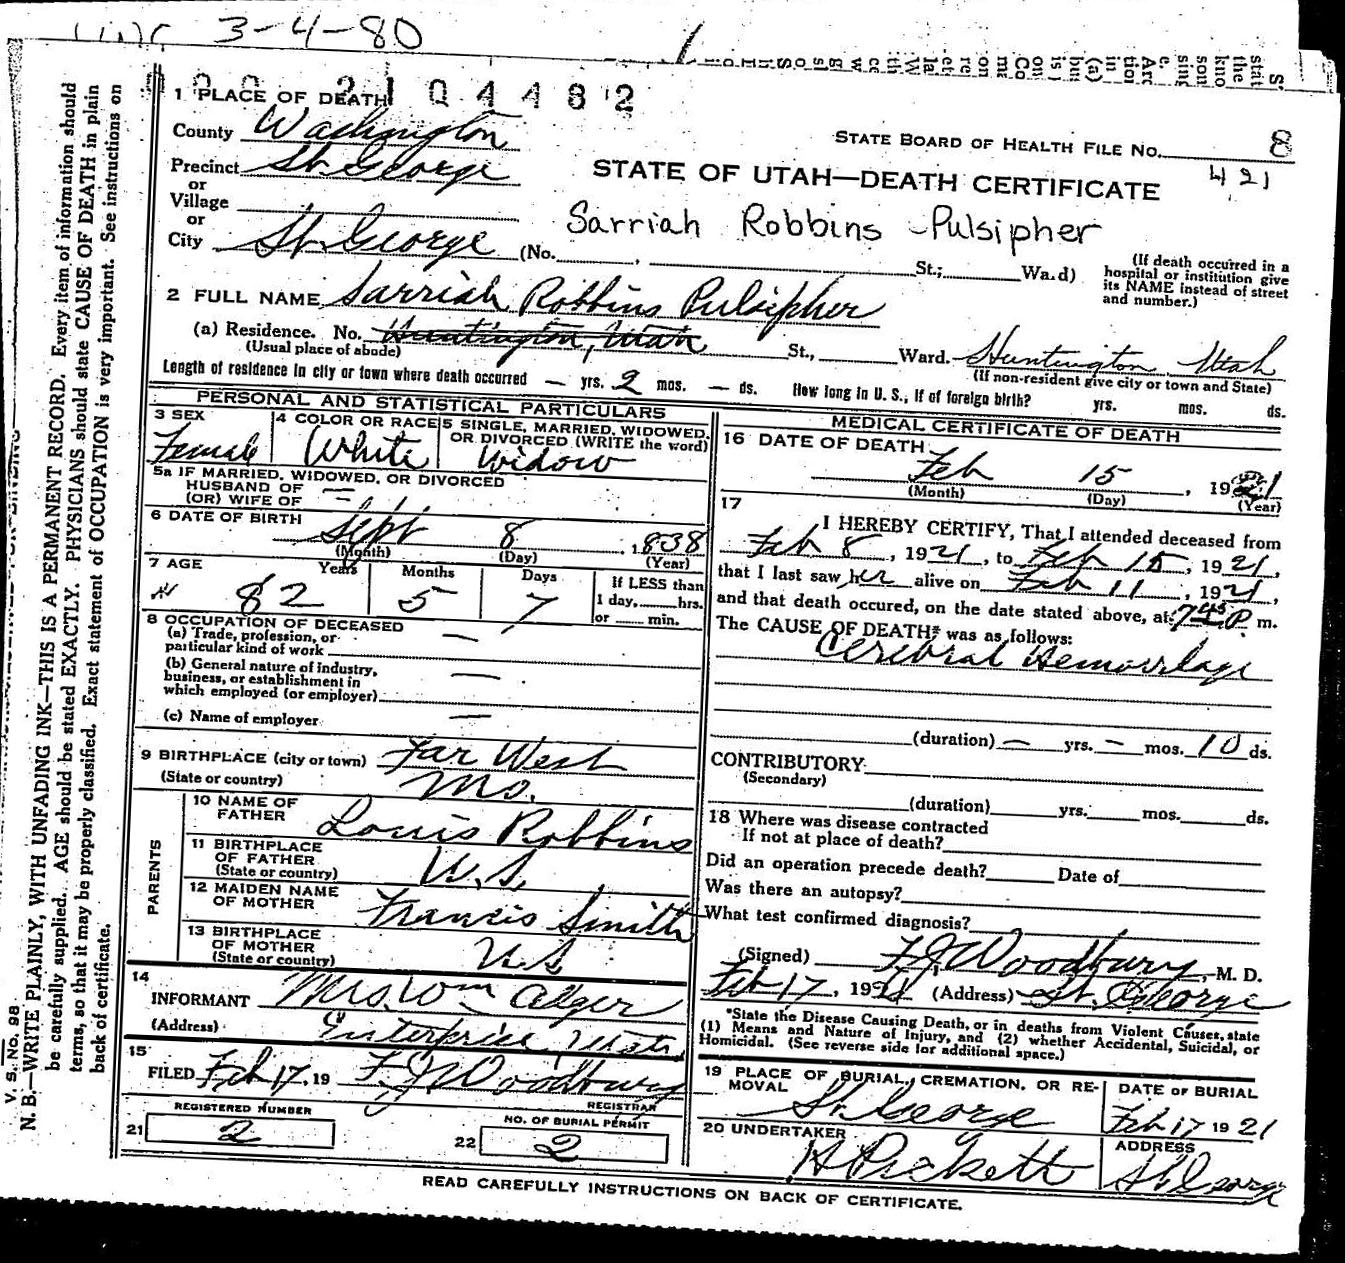 3-4-80
2104482
1 PLACE OF DEATH
County Washington
STATE BOARD OF HEALTH FILE No. 8
421
Precinct St. George
STATE OF UTAH—DEATH CERTIFICATE
or
Village
Sarriah Robbins Pulsipher
or
City St. George (No. , St.; Wa.d)
(If death occurred in a
hospital or institution give
its NAME instead of street
and number.)
2 FULL NAME Sarriah Robbins Pulsipher
(a) Residence. No. Huntington, Utah St., Ward. Huntington Utah
(Usual place of abode) (If non-resident give city or town and State)
Length of residence in city or town where death occurred — yrs. 2 mos. — ds. How long in U. S., if of foreign birth? yrs. mos. ds.
PERSONAL AND STATISTICAL PARTICULARS
3 SEX
Female
4 COLOR OR RACE
White
5 SINGLE, MARRIED, WIDOWED,
OR DIVORCED (WRITE the word)
Widow
5a IF MARRIED, WIDOWED, OR DIVORCED
HUSBAND OF —
(OR) WIFE OF —
6 DATE OF BIRTH
Sept 8, 1838
(Month) (Day) (Year)
7 AGE
Years Months Days
82 5 7
If LESS than
1 day, hrs.
or min.
8 OCCUPATION OF DECEASED
(a) Trade, profession, or
particular kind of work —
(b) General nature of industry,
business, or establishment in
which employed (or employer) —
(c) Name of employer —
9 BIRTHPLACE (city or town) Far West
(State or country) Mo.
PARENTS
10 NAME OF
FATHER Louis Robbins
11 BIRTHPLACE
OF FATHER
(State or country) U.S.
12 MAIDEN NAME
OF MOTHER Francis Smith
13 BIRTHPLACE
OF MOTHER
(State or country) U.S.
14
INFORMANT Mrs. Wm Alger
(Address) Enterprise, Utah
15
FILED Feb 17, 19 F J Woodbury
REGISTRAR
REGISTERED NUMBER
21 2
NO. OF BURIAL PERMIT
22 2
MEDICAL CERTIFICATE OF DEATH
16 DATE OF DEATH
Feb 15, 1921
(Month) (Day) (Year)
17
I HEREBY CERTIFY, That I attended deceased from
Feb 8, 1921, to Feb 15, 1921,
that I last saw her alive on Feb 11, 1921,
and that death occured, on the date stated above, at 7 45 P. m.
The CAUSE OF DEATH* was as follows:
Cerebral Hemorrhage
(duration) — yrs. — mos. 10 ds.
CONTRIBUTORY
(Secondary)
(duration) yrs. mos. ds.
18 Where was disease contracted
If not at place of death?
Did an operation precede death? Date of
Was there an autopsy?
What test confirmed diagnosis?
(Signed) F J Woodbury, M. D.
Feb 17, 1921 (Address) St. George
*State the Disease Causing Death, or in deaths from Violent Causes, state
(1) Means and Nature of Injury, and (2) whether Accidental, Suicidal, or
Homicidal. (See reverse side for additional space.)
19 PLACE OF BURIAL, CREMATION, OR RE-
MOVAL
St. George
DATE OF BURIAL
Feb 17 1921
20 UNDERTAKER
H Pickett
ADDRESS
St George
READ CAREFULLY INSTRUCTIONS ON BACK OF CERTIFICATE.
V. S. No. 98
N. B.—WRITE PLAINLY, WITH UNFADING INK—THIS IS A PERMANENT RECORD. Every item of information should
be carefully supplied. AGE should be stated EXACTLY. PHYSICIANS should state CAUSE OF DEATH in plain
terms, so that it may be properly classified. Exact statement of OCCUPATION is very important. See instructions on
back of certificate.